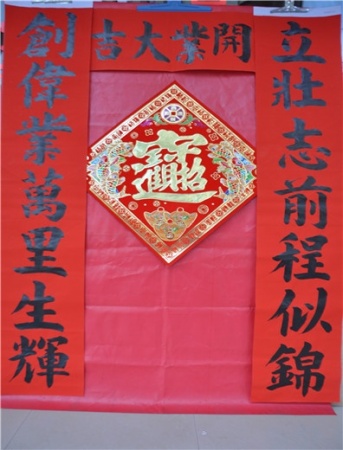 立壯志前程似錦
創偉業萬里生輝
開業大吉
招財進寶